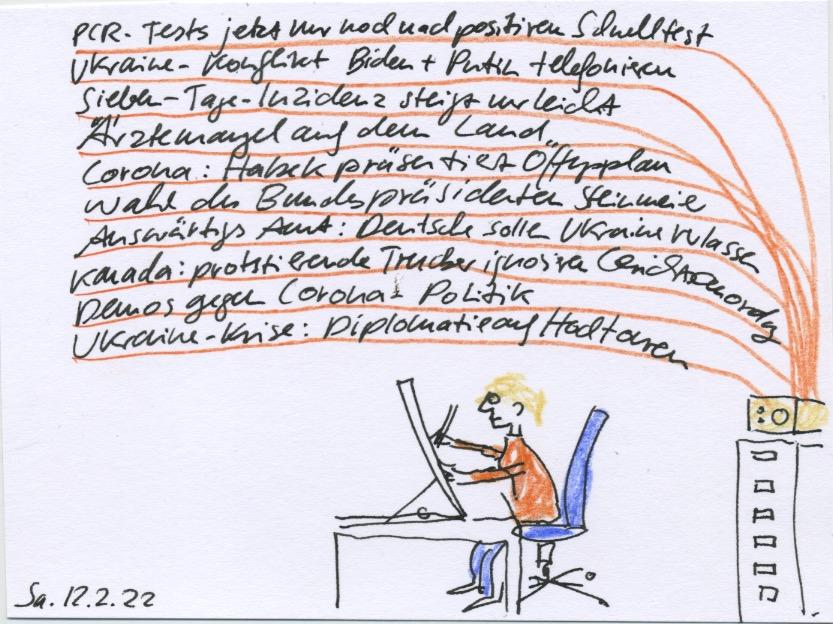 PCR-Tests jetzt nur noch nach positiven Schnelltest
Ukraine-Konflikt Biden + Putin telefonieren
Sieben-Tage-Inzidenz steigt nur leicht
Ärztemangel auf dem Land
Corona: Habek präsentiert Öffnplan
Wahl des Bundespräsidenten Steinmeier
Auswärtigs Amt: Deutsche sollen Ukraine verlassen
Kanada: protestierende Trucker ignorieren
Demos gegen Corona-Politik
Ukraine-Krise: Diplomatie auf Hochtouren
Sa. 12.2.22